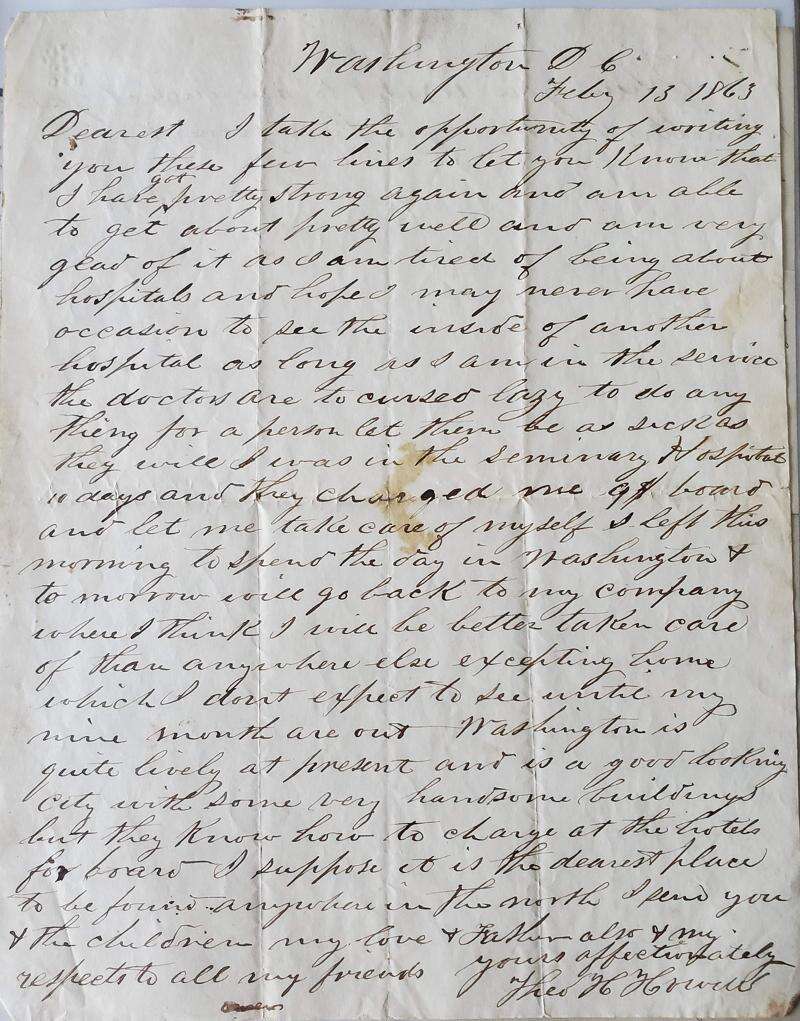 Washington D C
Feby 13 1863
Dearest I take the opportunity of writing
you these few lines to let you Know that
I have got pretty strong again and am able
to get about pretty well and am very
glad of it as I am tired of being about
hospitals and hope I may never have
occasion to see the inside of another
hospital as long as I am in the service
the doctors are to cursed lazy to do any
thing for a person let them be as sick as
they will I was in the Seminary Hospital
10 days and they charged me board
and let me take care of myself I left this
morning to spend the day in Washington &
to morrow will go back to my company
where I think I will be better taken care
of than anywhere else excepting home
which I dont expect to see until my
nine month are out Washington is
quite lively at present and is a good looking
city with some very handsome buildings
but they Know how to charge at the hotels
for board I suppose it is the dearest place
to be found anywhere in the north I send you
& the children my love & Father also & my
respects to all my friends yours affectionately
Theo H Howell